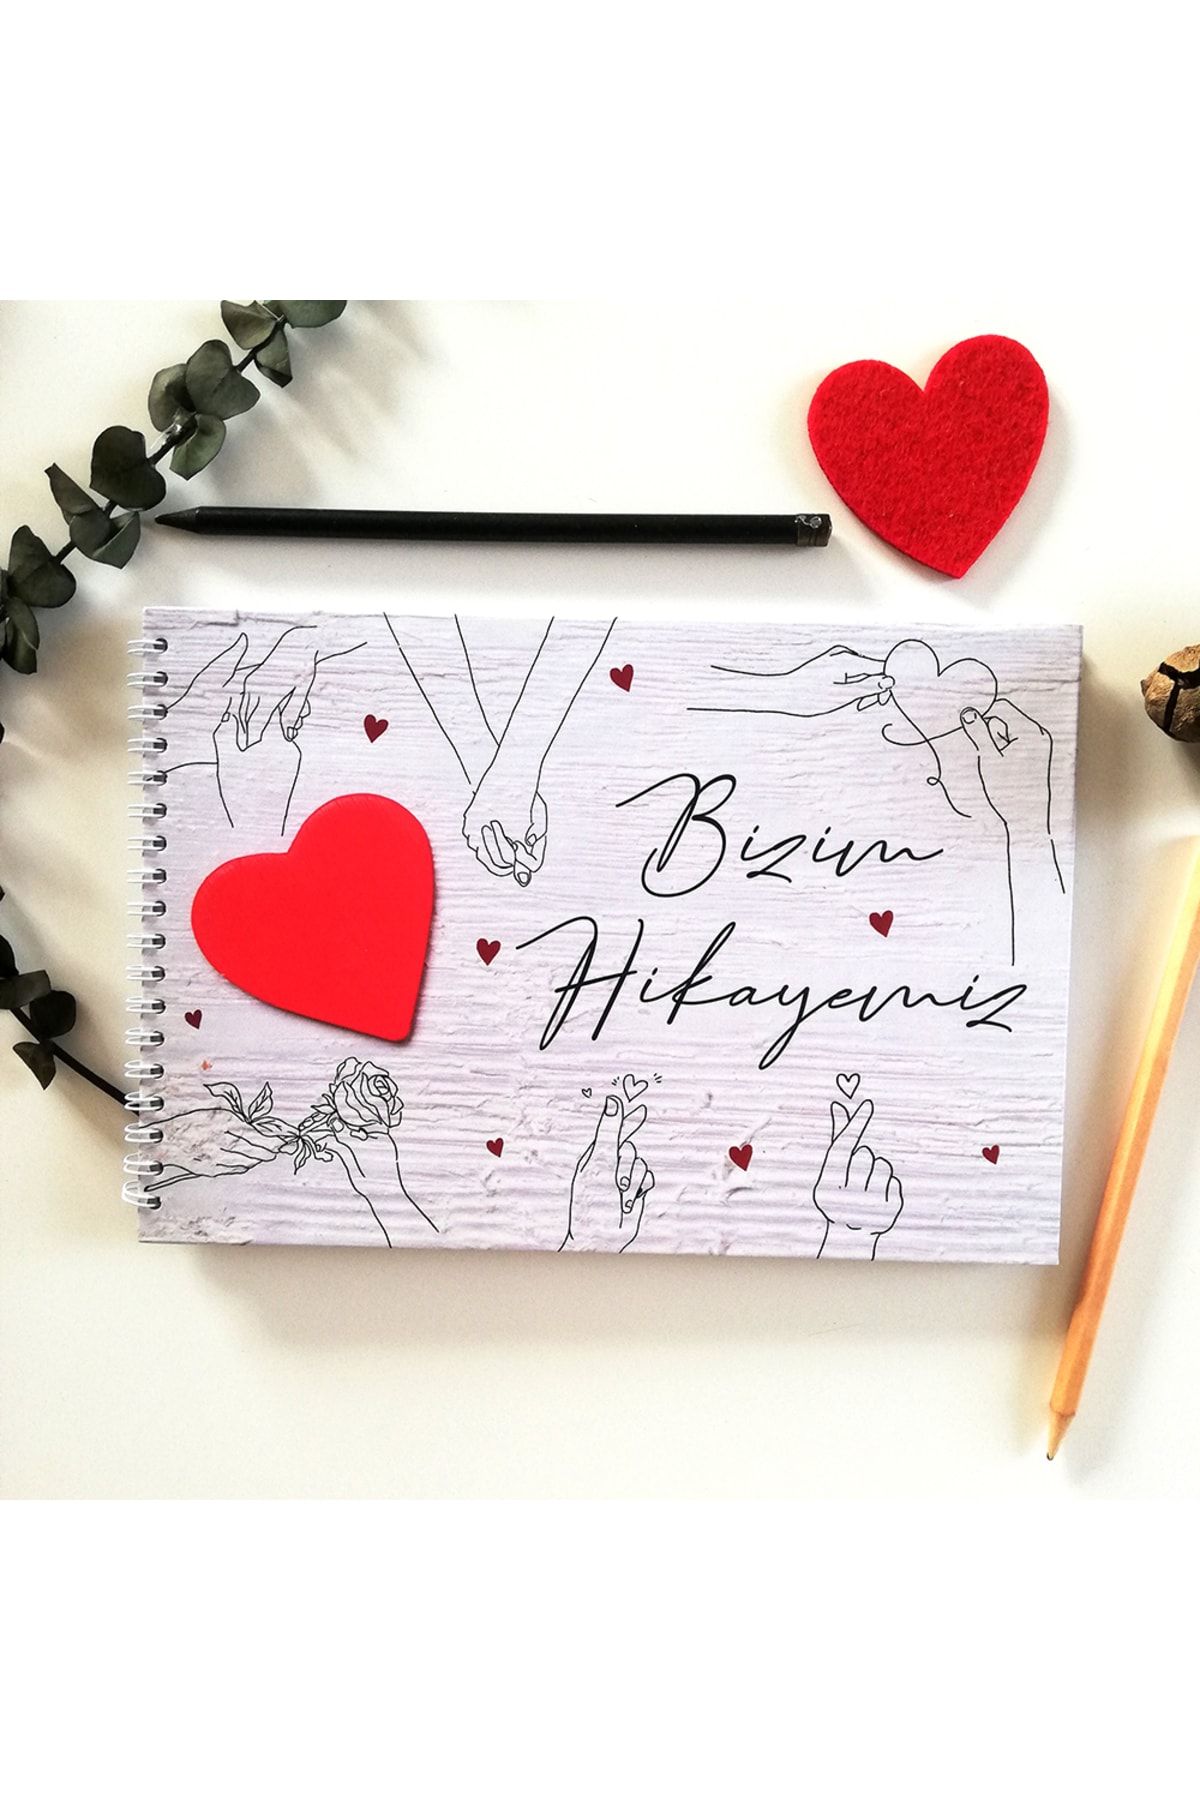 Bizim
Hikayemiz